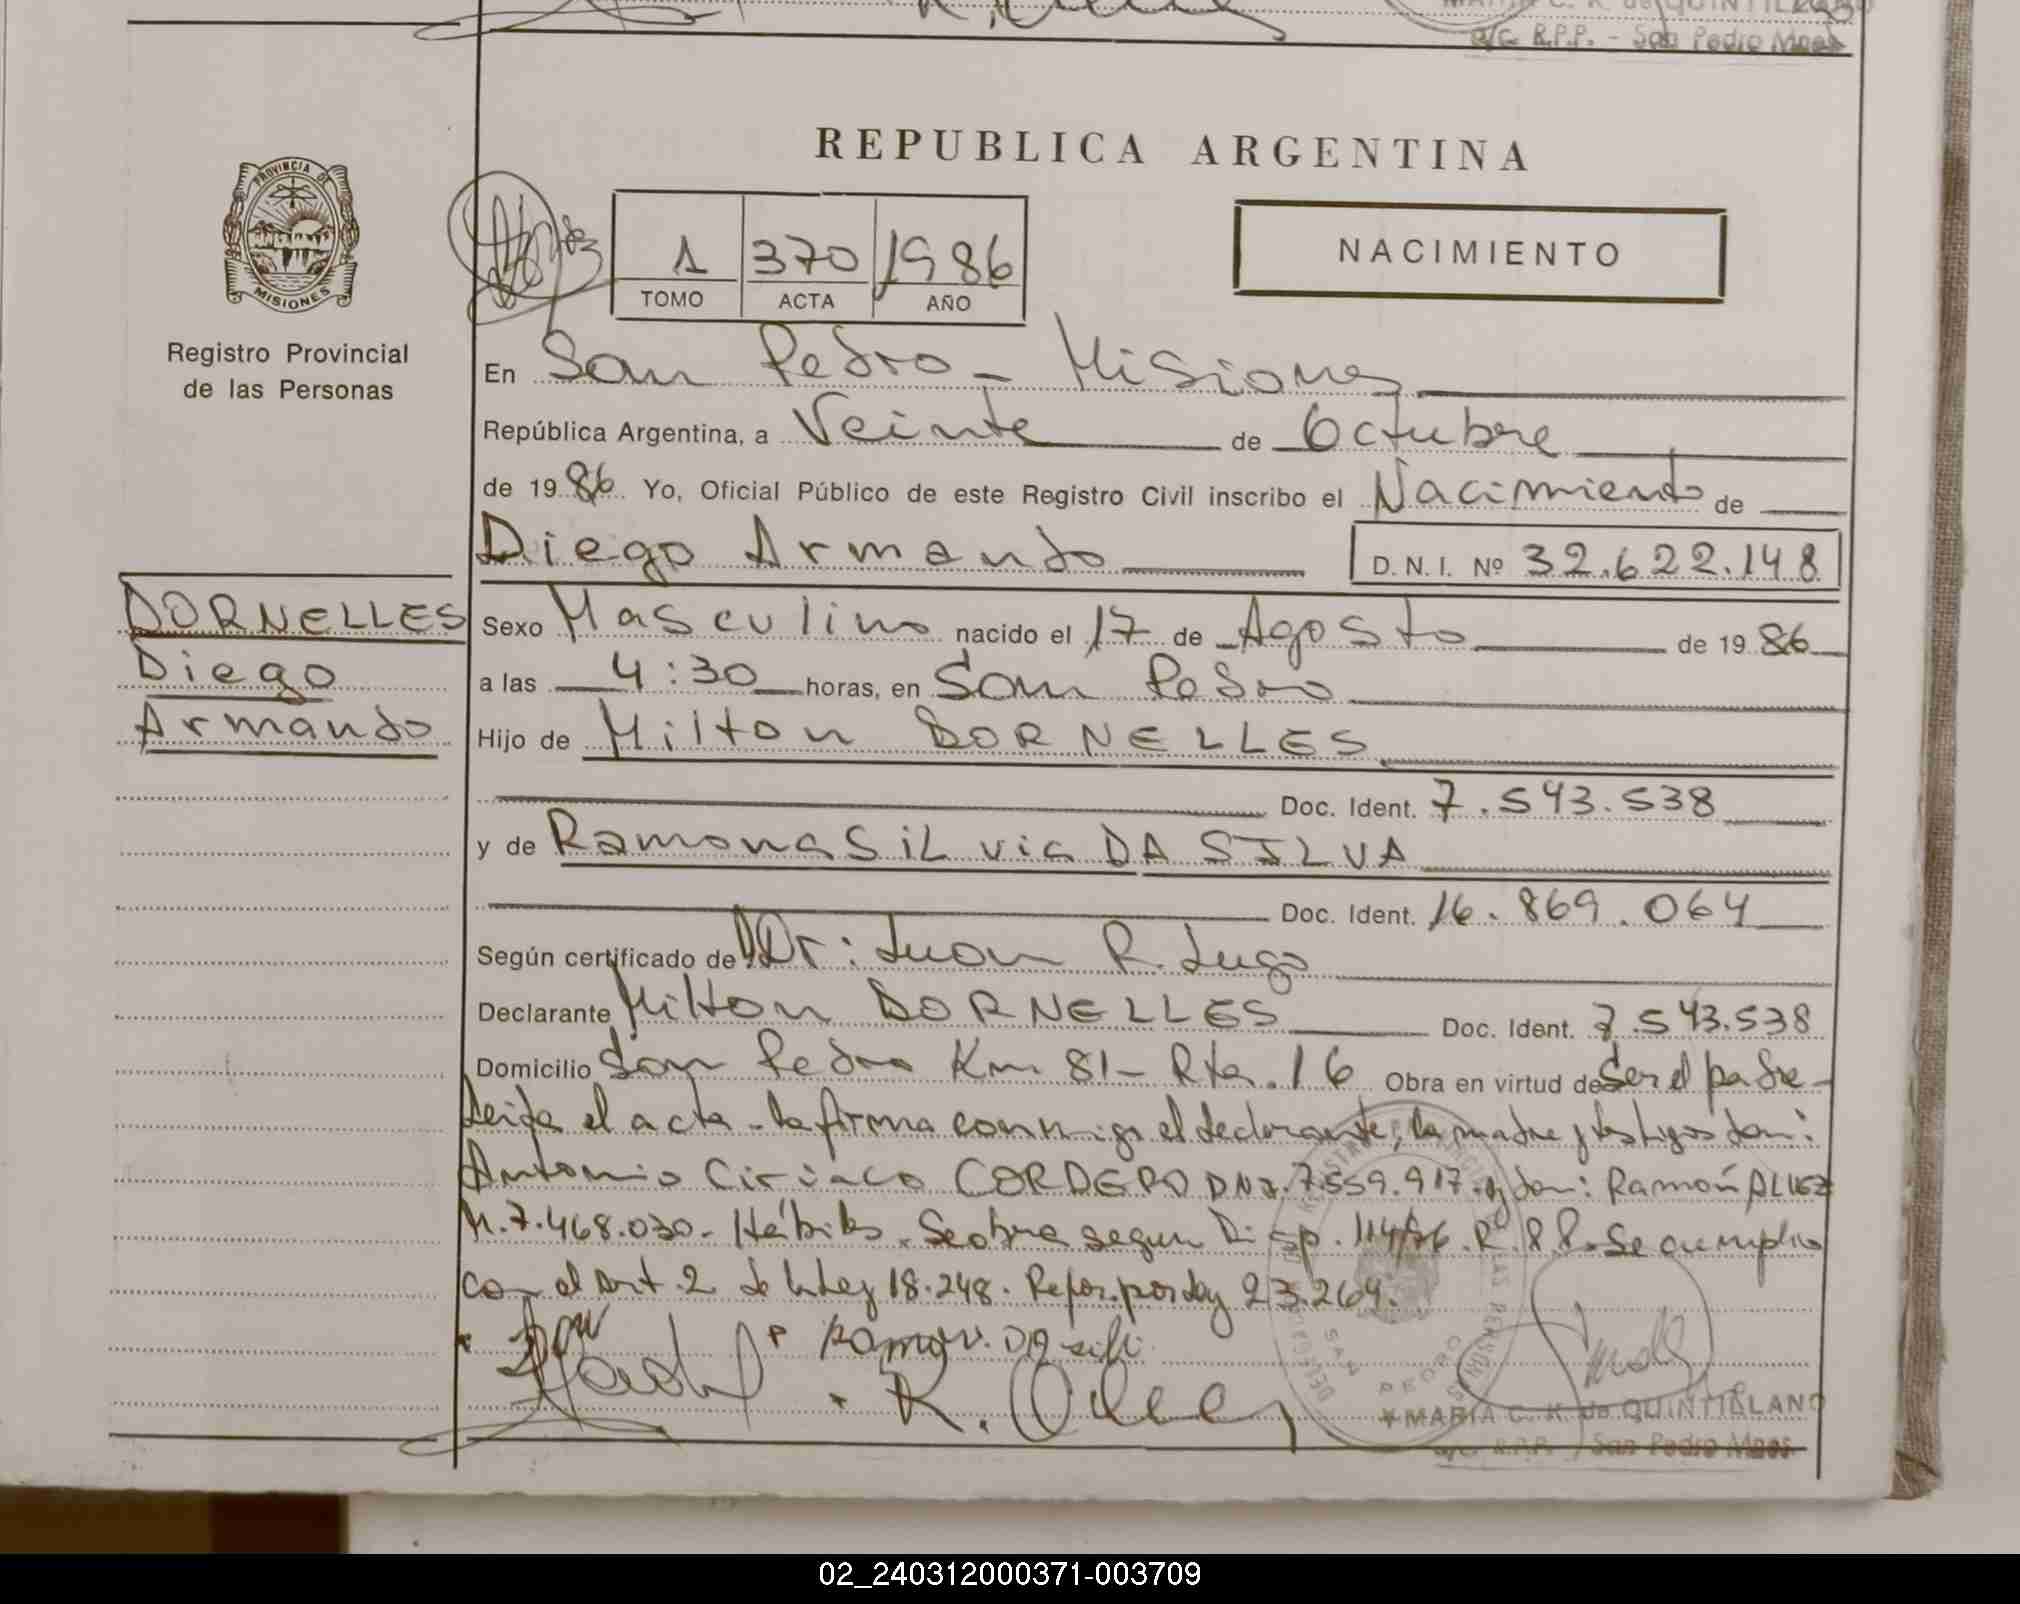 a/c. R.P.P. - San Pedro Mnes
REPUBLICA ARGENTINA
PROVINCIA DE MISIONES
Registro Provincial
de las Personas
1 370 1986
TOMO ACTA AÑO
NACIMIENTO
En San Pedro - Misiones
República Argentina, a Veinte de Octubre
de 1986 Yo, Oficial Público de este Registro Civil inscribo el Nacimiento de
Diego Armando D. N. I. Nº 32.622.148
DORNELLES
Diego
Armando
Sexo Masculino nacido el 17 de Agosto de 1986
a las 4:30 horas, en San Pedro
Hijo de Milton DORNELLES
Doc. Ident. 7.543.538
y de Ramona SiLvia DA SILVA
Doc. Ident. 16.869.064
Según certificado de Dr: Juan R. Lugo
Declarante Milton DORNELLES Doc. Ident. 7.543.538
Domicilio San Pedro Km 81 - Rta. 16 Obra en virtud de Ser el padre -
Leida el acta - la firma conmigo el declarante, la madre y testigos don:
Antonio Ciriaco CORDERO DNI. 7.559.917. y don: Ramón ALVEZ
M. 7.468.030 - Hábiles. Se obra segun Disp. 114/86. R.P.P. Se cumplio
con el Art. 2 de la Ley 18.248. Refor. por Ley 23.264.
SAN PEDRO
R.
MARIA C. K. de QUINTILLANO
a/c. R.P.P. San Pedro Mnes.
02_240312000371-003709